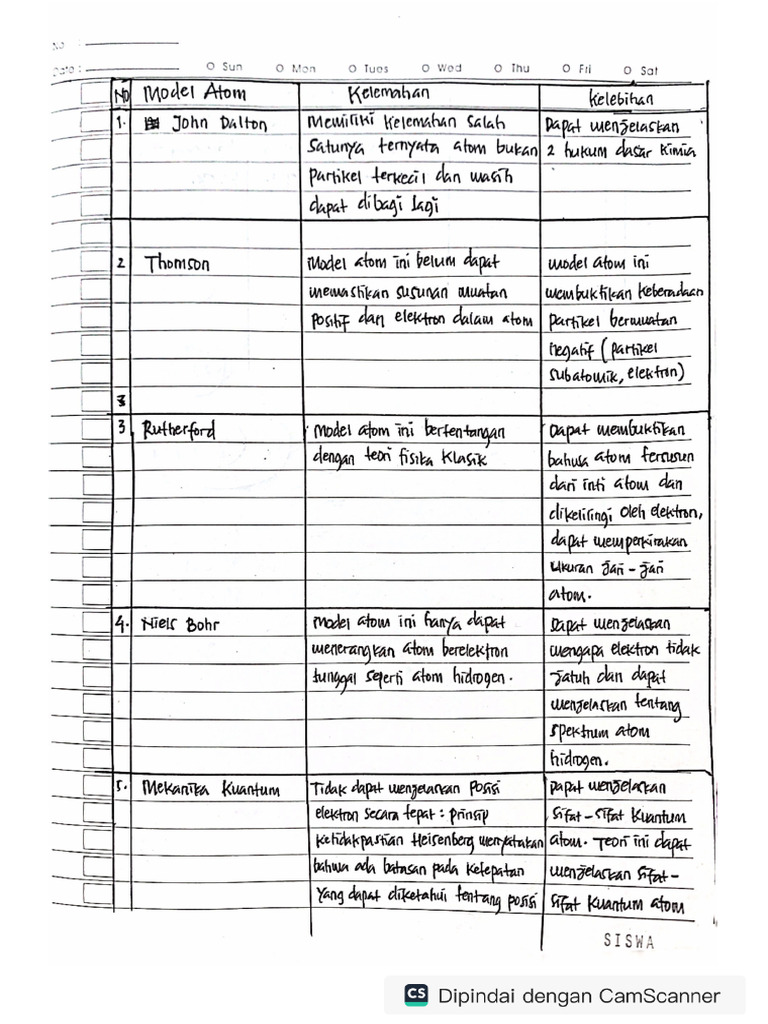 No :
Date :
O Sun O Mon O Tues O Wed O Thu O Fri O Sat
No Model Atom Kelemahan Kelebihan
1. John Dalton Memiliki kelemahan salah Dapat menjelaskan
satunya ternyata atom bukan 2 hukum dasar kimia
partikel terkecil dan masih
dapat dibagi lagi
2 Thomson Model atom ini belum dapat model atom ini
memastikan susunan muatan membuktikan keberadaan
positif dan elektron dalam atom partikel bermuatan
negatif (partikel
subatomik, elektron)
3 Rutherford Model atom ini bertentangan Dapat membuktikan
dengan teori fisika klasik bahwa atom tersusun
dari inti atom dan
dikelilingi oleh elektron,
dapat memperkirakan
ukuran jari-jari
atom.
4. Niels Bohr Model atom ini hanya dapat Dapat menjelaskan
menerangkan atom berelektron mengapa elektron tidak
tunggal seperti atom hidrogen. jatuh dan dapat
menjelaskan tentang
spektrum atom
hidrogen.
5. Mekanika Kuantum Tidak dapat menjelaskan posisi Dapat menjelaskan
elektron secara tepat : prinsip sifat-sifat kuantum
ketidakpastian Heisenberg menyatakan atom. Teori ini dapat
bahwa ada batasan pada ketepatan menjelaskan sifat-
yang dapat diketahui tentang posisi sifat kuantum atom
SISWA
CS Dipindai dengan CamScanner